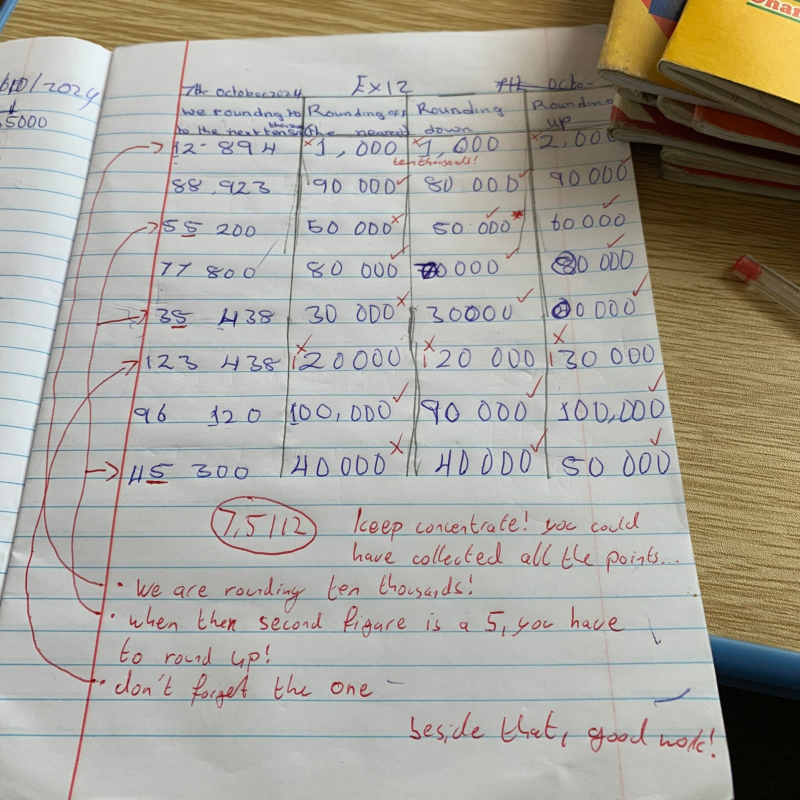 6/10/2024
5000
7th October 2024 Ex12 7th Octo-
we roundng to Rounding off Rounding Rounding
to the next tens thou the nearest down up
12-894 1,000 1,000 2,000
ten thousands!
88,923 90 000 80 000 90 000
55 200 50 000 50 000 60 000
77 800 80 000 70 000 80 000
35 438 30 000 30000 40 000
123 438 120000 120 000 130 000
96 120 100,000 90 000 100,000
45 300 40 000 40 000 50 000
7,5/12 keep concentrate! you could
have collected all the points...
• We are rounding ten thousands!
• when then second figure is a 5, you have
to round up!
• don't forget the one
beside that, good work!